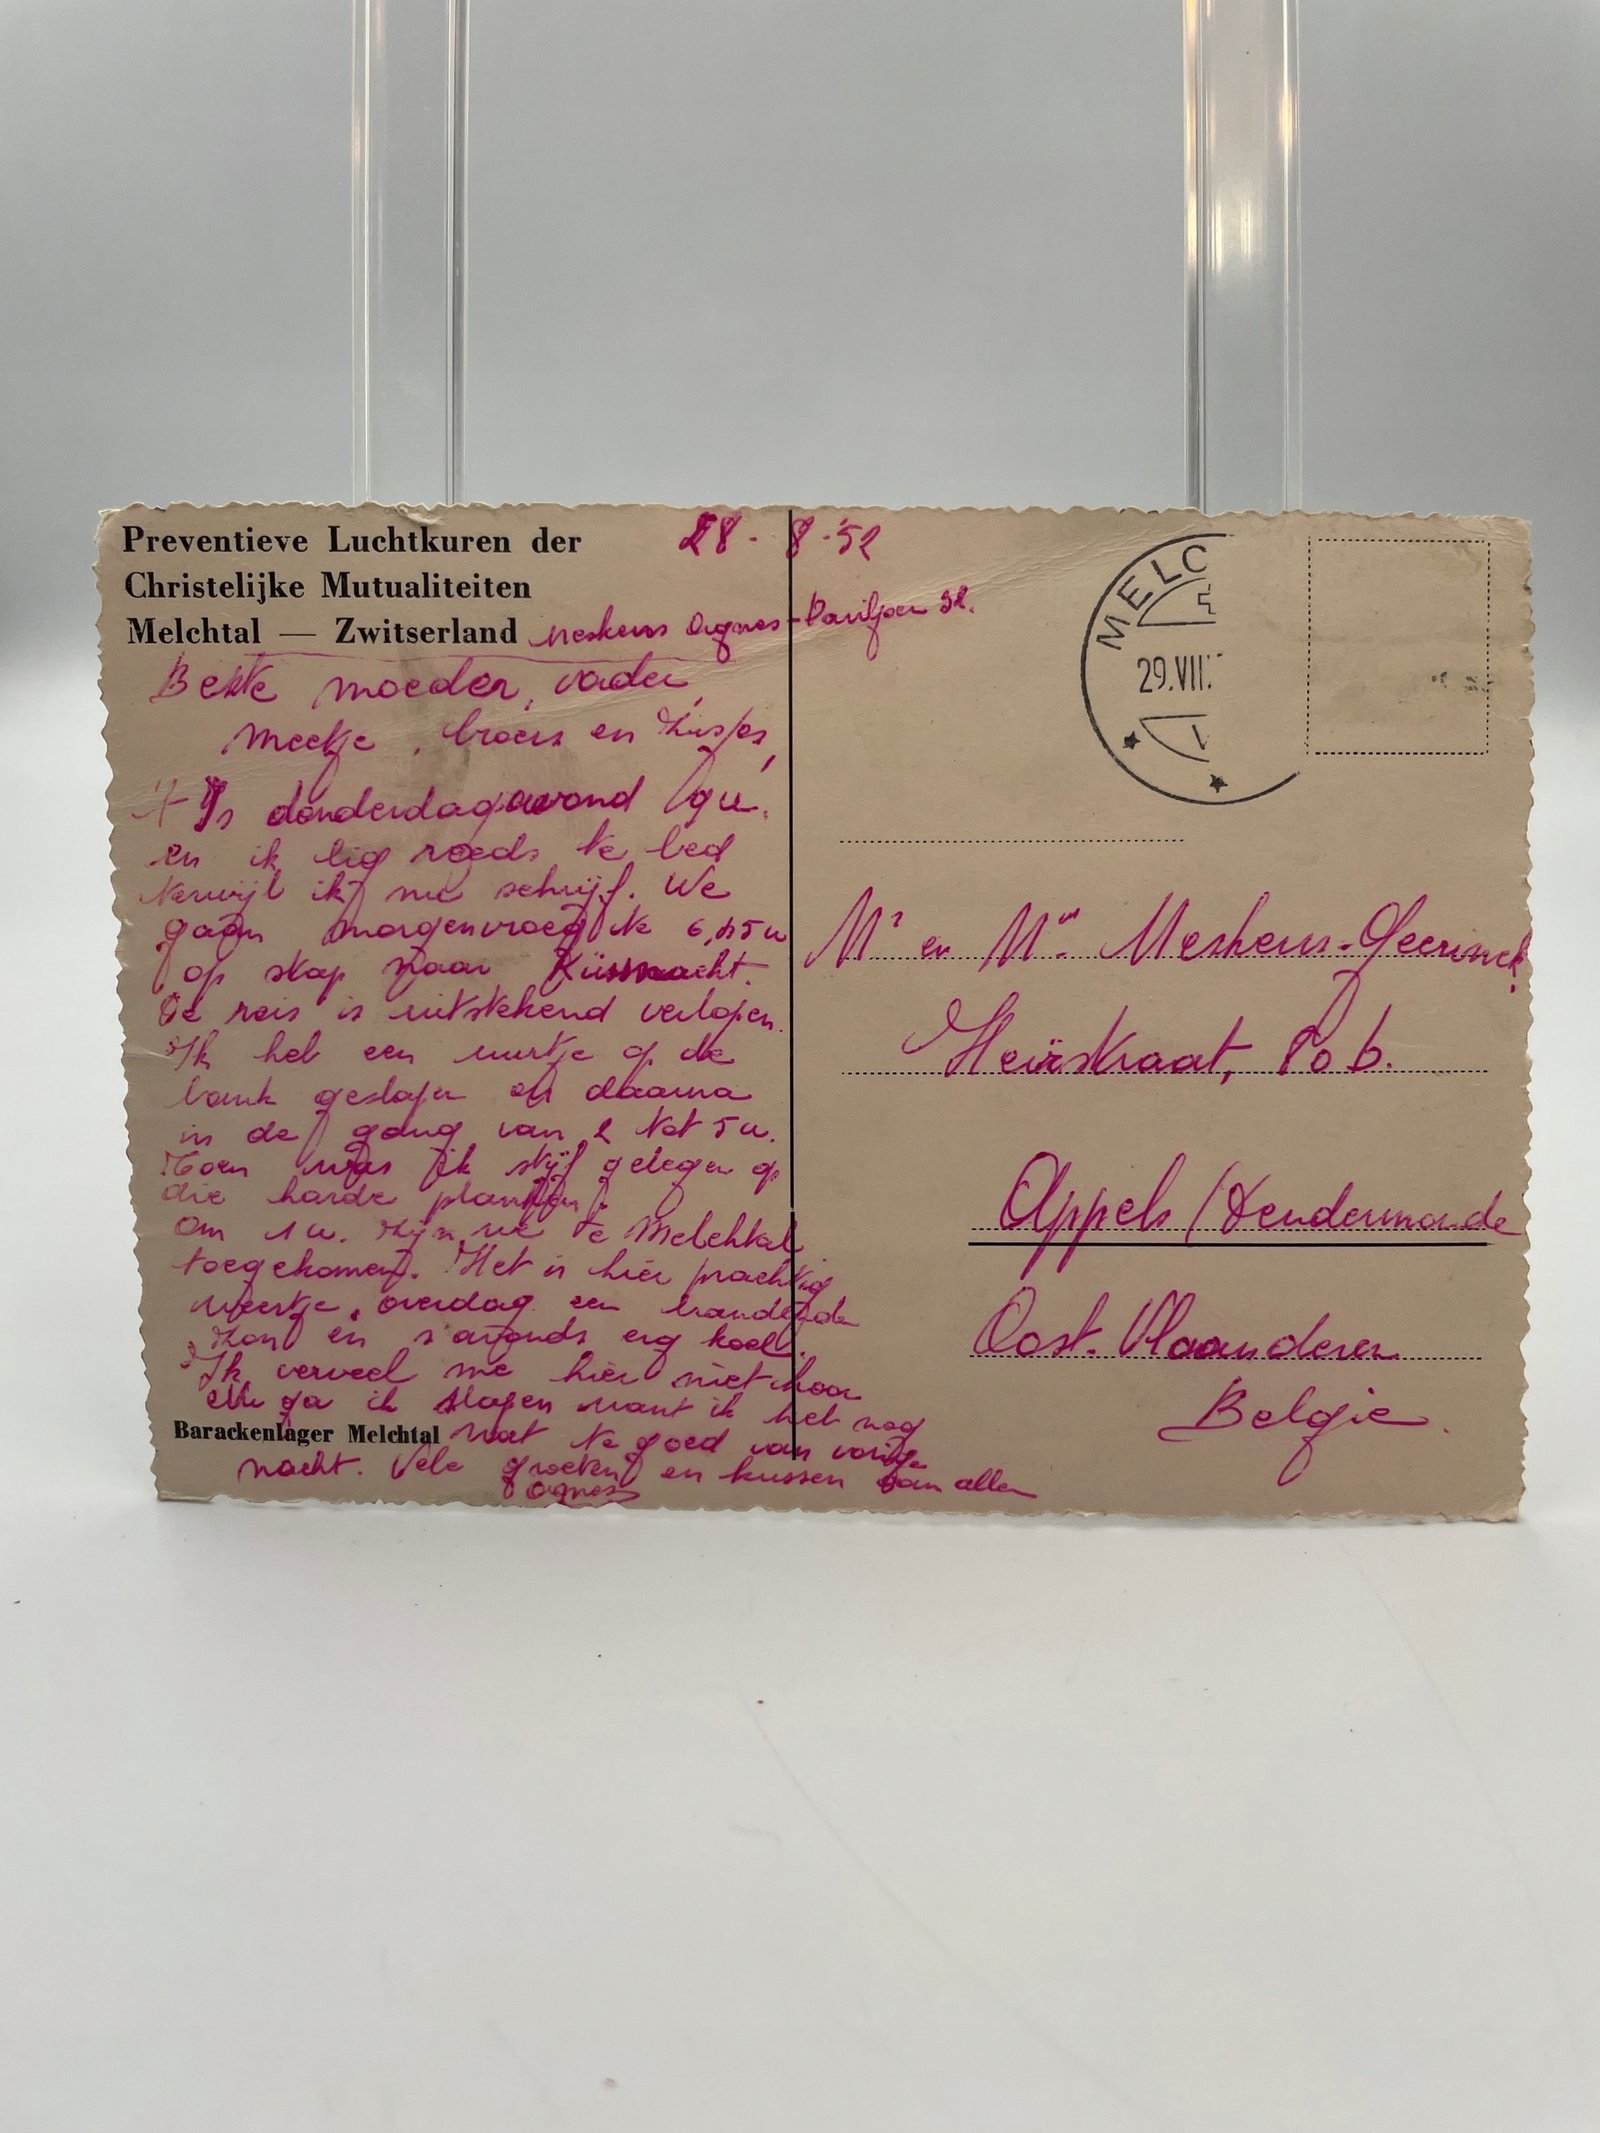 Preventieve Luchtkuren der
Christelijke Mutualiteiten
Melchtal — Zwitserland
28-8-'52
Meskens Agnes - Paviljoen 32.
Beste moeder, vader,
meetje, broers en zusjes,
't Is donderdagavond 9 u.
en ik lig reeds te bed
terwijl ik nu schrijf. We
gaan morgenvroeg te 6,45 u
op stap naar Küssnacht.
De reis is uitstekend verlopen.
Ik heb een uurtje op de
bank geslapen en daarna
in de gang van 2 tot 5 u.
Toen was ik stijf gelegen op
die harde planken.
Om 1 u. zijn we te Melchtal
toegekomen. Het is hier prachtig
weertje, overdag een brandende
zon en s'avonds erg koel.
Ik verveel me hier niet hoor
Nu ga ik slapen want ik heb nog
wat te goed van vorige
nacht. Vele groeten en kussen aan allen
Agnes
Barackenlager Melchtal
MELC
29.VII
Mr en Mme Meskens-Geerinck
Heirstraat, 80 b.
Appels / Dendermonde
Oost. Vlaanderen
België.